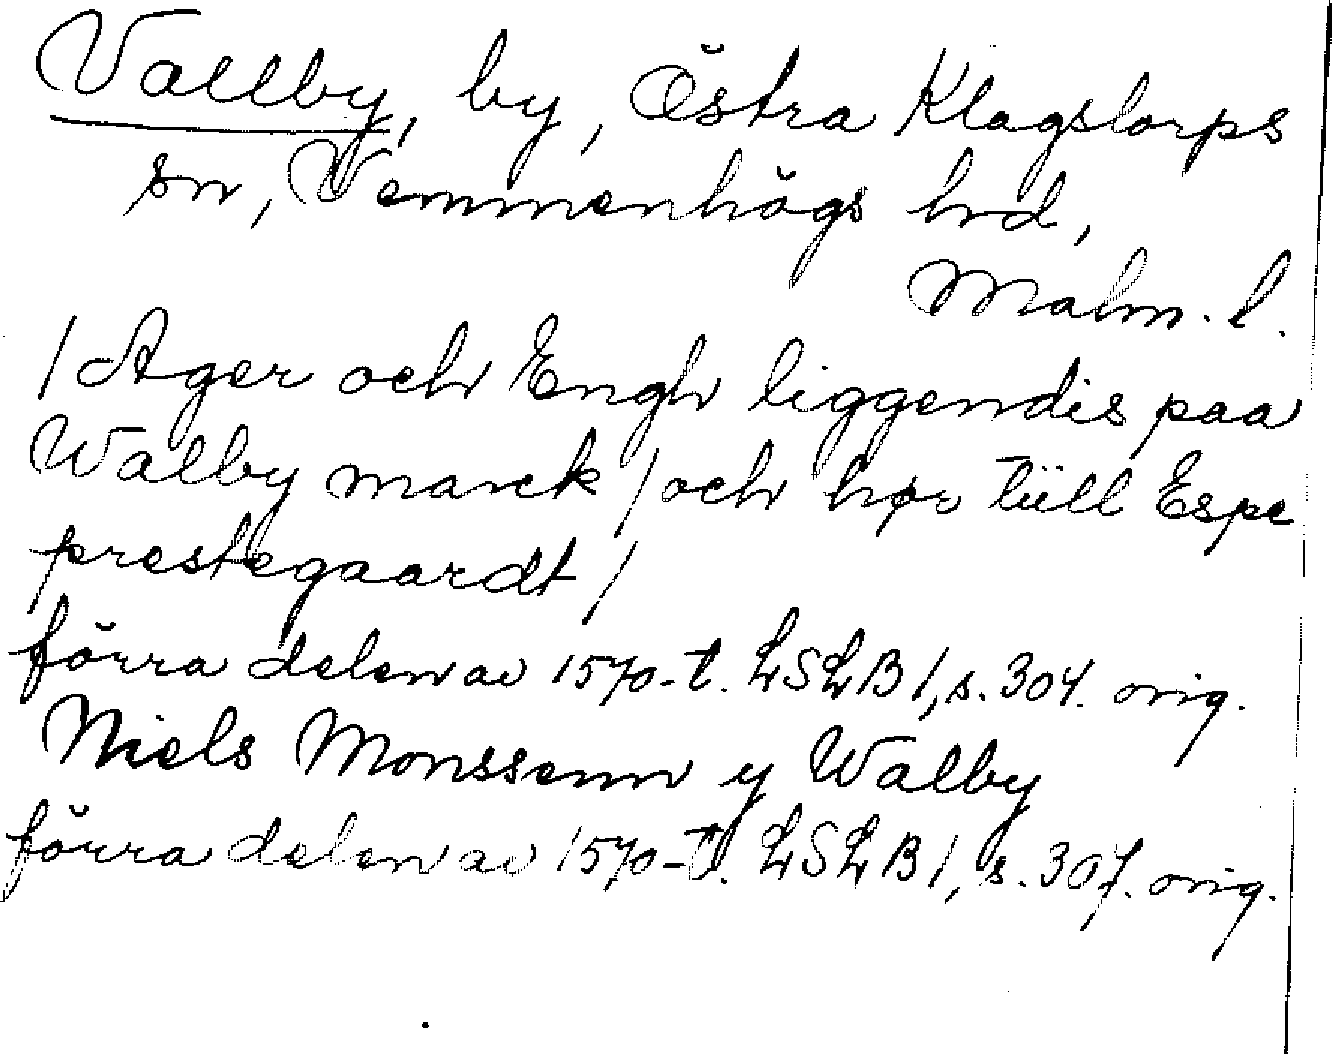 Vallby, by, Östra Klagstorps
sn, Vemmenhögs hrd,
Malm. l.
/ Ager och Engh liggendis paa
Walby marck / och hør tüll Espe
prestegaardt /
förra delen av 1570-t. LSLB 1, s. 304. orig.
Niels Monssenn y Walby
förra delen av 1570-t. LSLB 1, s. 307. orig.